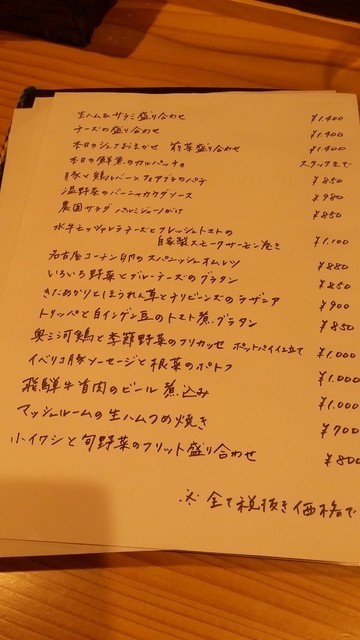 生ハム&サラミ盛り合わせ ¥1.400
チーズの盛り合わせ ¥1.400
本日のシェフおまかせ 前菜盛り合わせ ¥1.400
本日の鮮魚のカルパッチョ スタッフまで
豚と鶏レバー×フォアグラのパテ ¥850
温野菜のバーニャカウダソース ¥980
農園サラダ パルミジャーノがけ ¥850
水牛モッツァレラチーズとフレッシュトマトの
自家製スモークサーモン巻き ¥1.100
名古屋コーチン卵のスパニッシュオムレツ ¥880
いろいろ野菜とブルーチーズのグラタン ¥850
きたあかりとほうれん草とチリビーンズのラザニア ¥900
トリッパと白インゲン豆のトマト煮 グラタン ¥850
奥三河鶏と季節野菜のフリカッセ ポットパイ仕立て ¥1.000
イベリコ豚ソーセージと根菜のポトフ ¥1.000
飛騨牛首肉のビール煮込み ¥1.000
マッシュルームの生ハムつめ焼き ¥700
小イワシと旬野菜のフリット盛り合わせ ¥800
※ 全て税抜き価格で